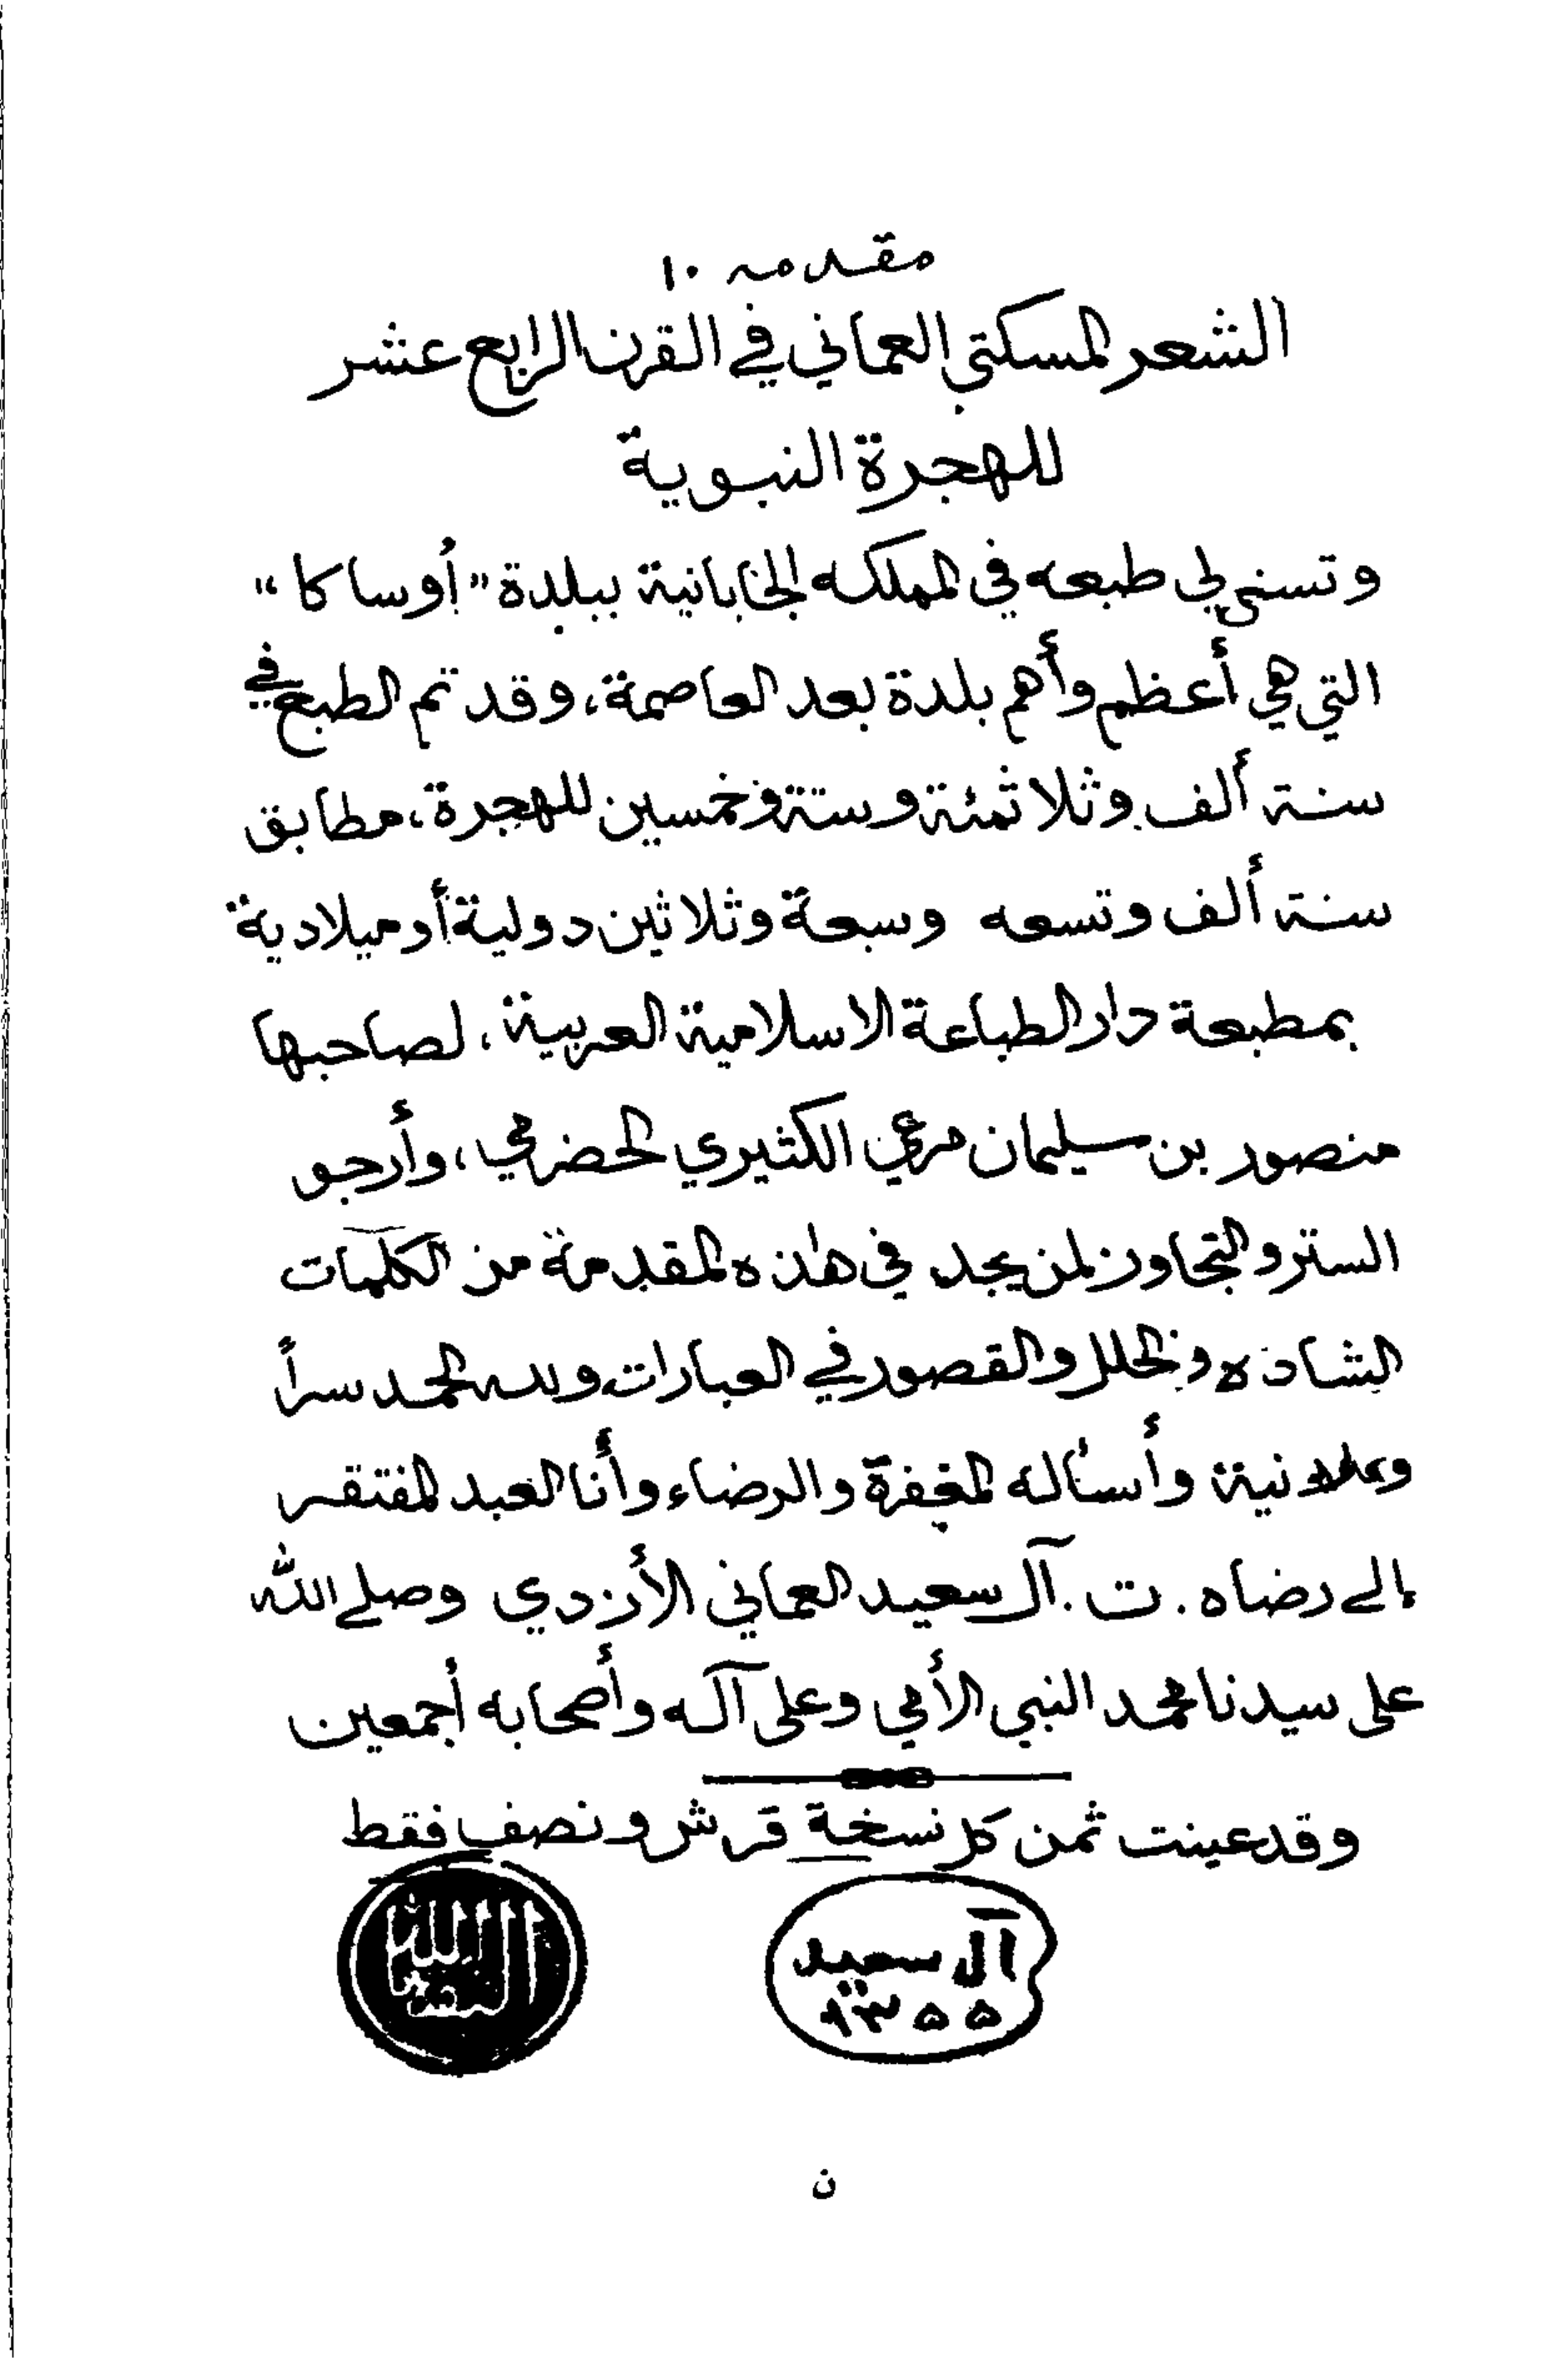 مقدمه ١٠
الشعر المسكتي العماني في القرن الرابع عشر
للهجرة النبوية
وتسنى لي طبعه في المملكه الجابانية ببلدة "أوساكا"
التي هي أعظم وأهم بلدة بعد العاصمة، وقد تم الطبع في
سنة ألف وثلاثمئة وستة وخمسين للهجرة، مطابق
سنة ألف وتسعه وسبعة وثلاثين دولية أو ميلادية
بمطبعة دار الطباعة الاسلامية العربية، لصاحبها
منصور بن سليمان مرعي الكثيري الحضرمي، وأرجو
الستر والتجاوز لمن يجد في هاذه المقدمة من الكلمات
الشاذه والخلل والقصور في العبارات ولله الحمد سراً
وعلانية وأسئاله المغفرة والرضاء وأنا العبد المفتقر
إلى رضاه . ت . آل سعيد العماني الأزدي وصلى الله
على سيدنا محمد النبي الأمي وعلى آله وأصحابه أجمعين
وقد عينت ثمن كل نسخة قرش ونصف فقط
آل سعيد
١٣٥٥
ن